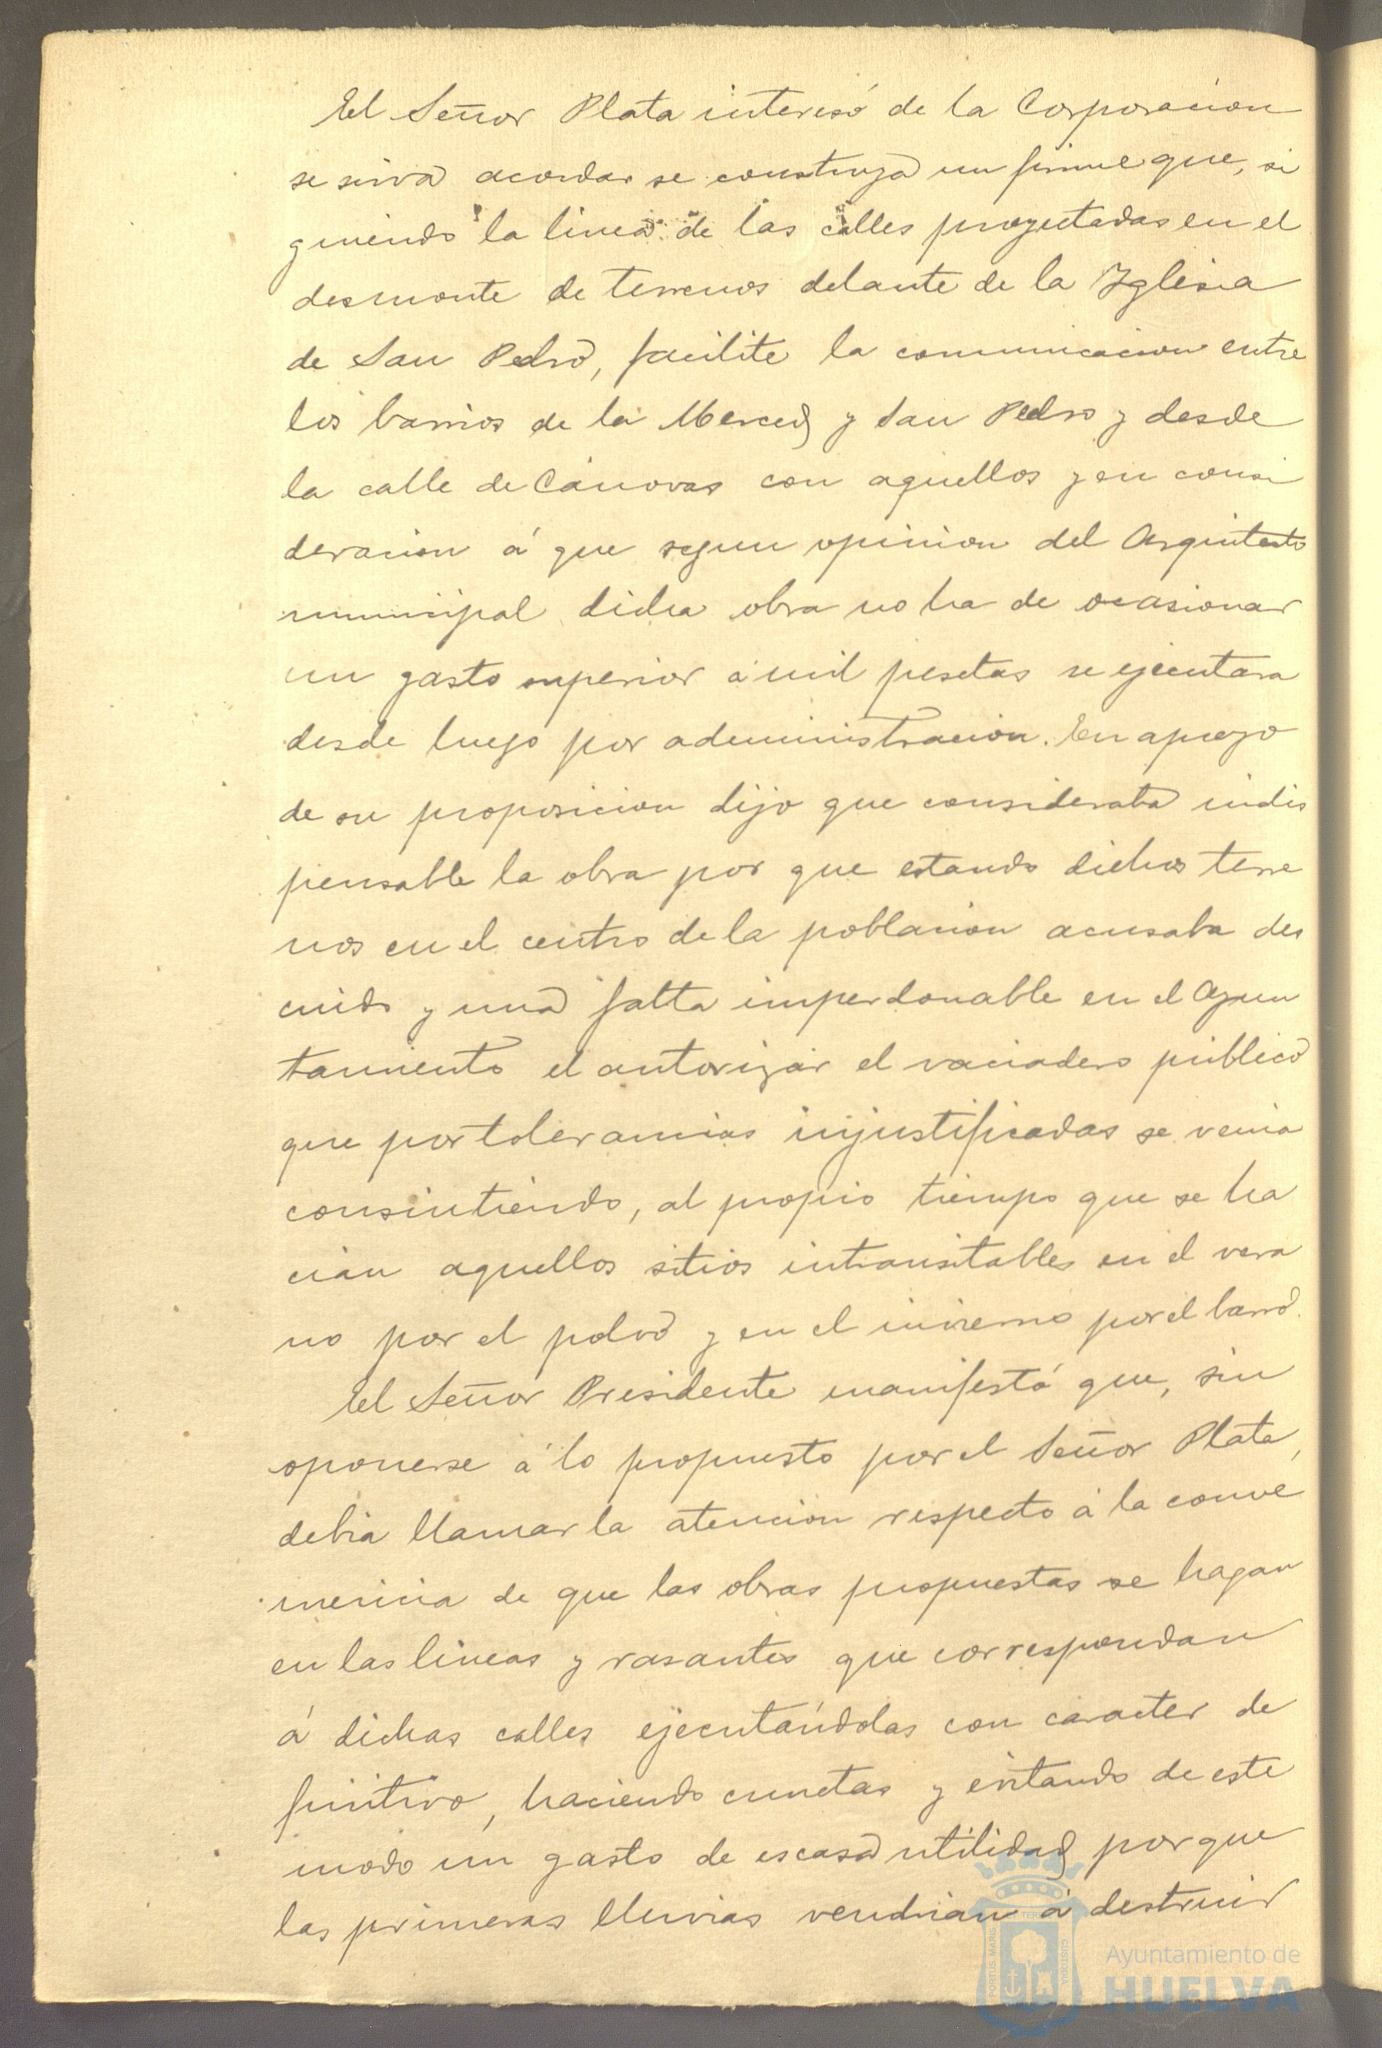 El Señor Plata interesó de la Corporacion
se sirva acordar se construya un firme que, si
guiendo la linea de las calles proyectadas en el
desmonte de terrenos delante de la Iglesia
de San Pedro, facilite la comunicacion entre
los barrios de la Merced y San Pedro y desde
la calle de Cánovas con aquellos y en consi
deracion á que segun opinion del Arquitecto
municipal dicha obra no ha de ocasionar
un gasto superior á mil pesetas se ejecutara
desde luego por administracion. En apoyo
de su proposicion dijo que consideraba indis
pensable la obra por que estando dichos terre
nos en el centro de la poblacion acusaba des
cuido y una falta imperdonable en el Ayun
tamiento el autorizar el vaciadero público
que por tolerancias injustificadas se venia
consintiendo, al propio tiempo que se ha
cian aquellos sitios intransitables en el vera
no por el polvo y en el invierno por el barro.
El Señor Presidente manifestó que, sin
oponerse á lo propuesto por el Señor Plata,
debia llamar la atencion respecto á la conve
niencia de que las obras propuestas se hagan
en las lineas y rasantes que correspondan
á dichas calles ejecutándolas con caracter de
finitivo, haciendo cunetas y evitando de este
modo un gasto de escasa utilidad por que
las primeras lluvias vendrian á destruir
Ayuntamiento de
HUELVA